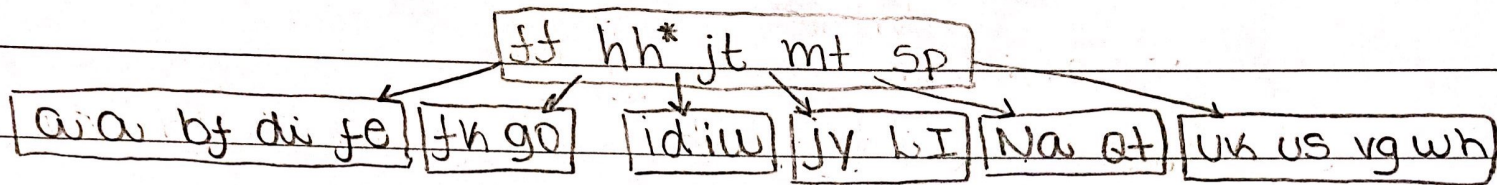 ff hh* jt mt sp
aa bf di fe fk go id iu jy LI Na Qt UK US vg wh